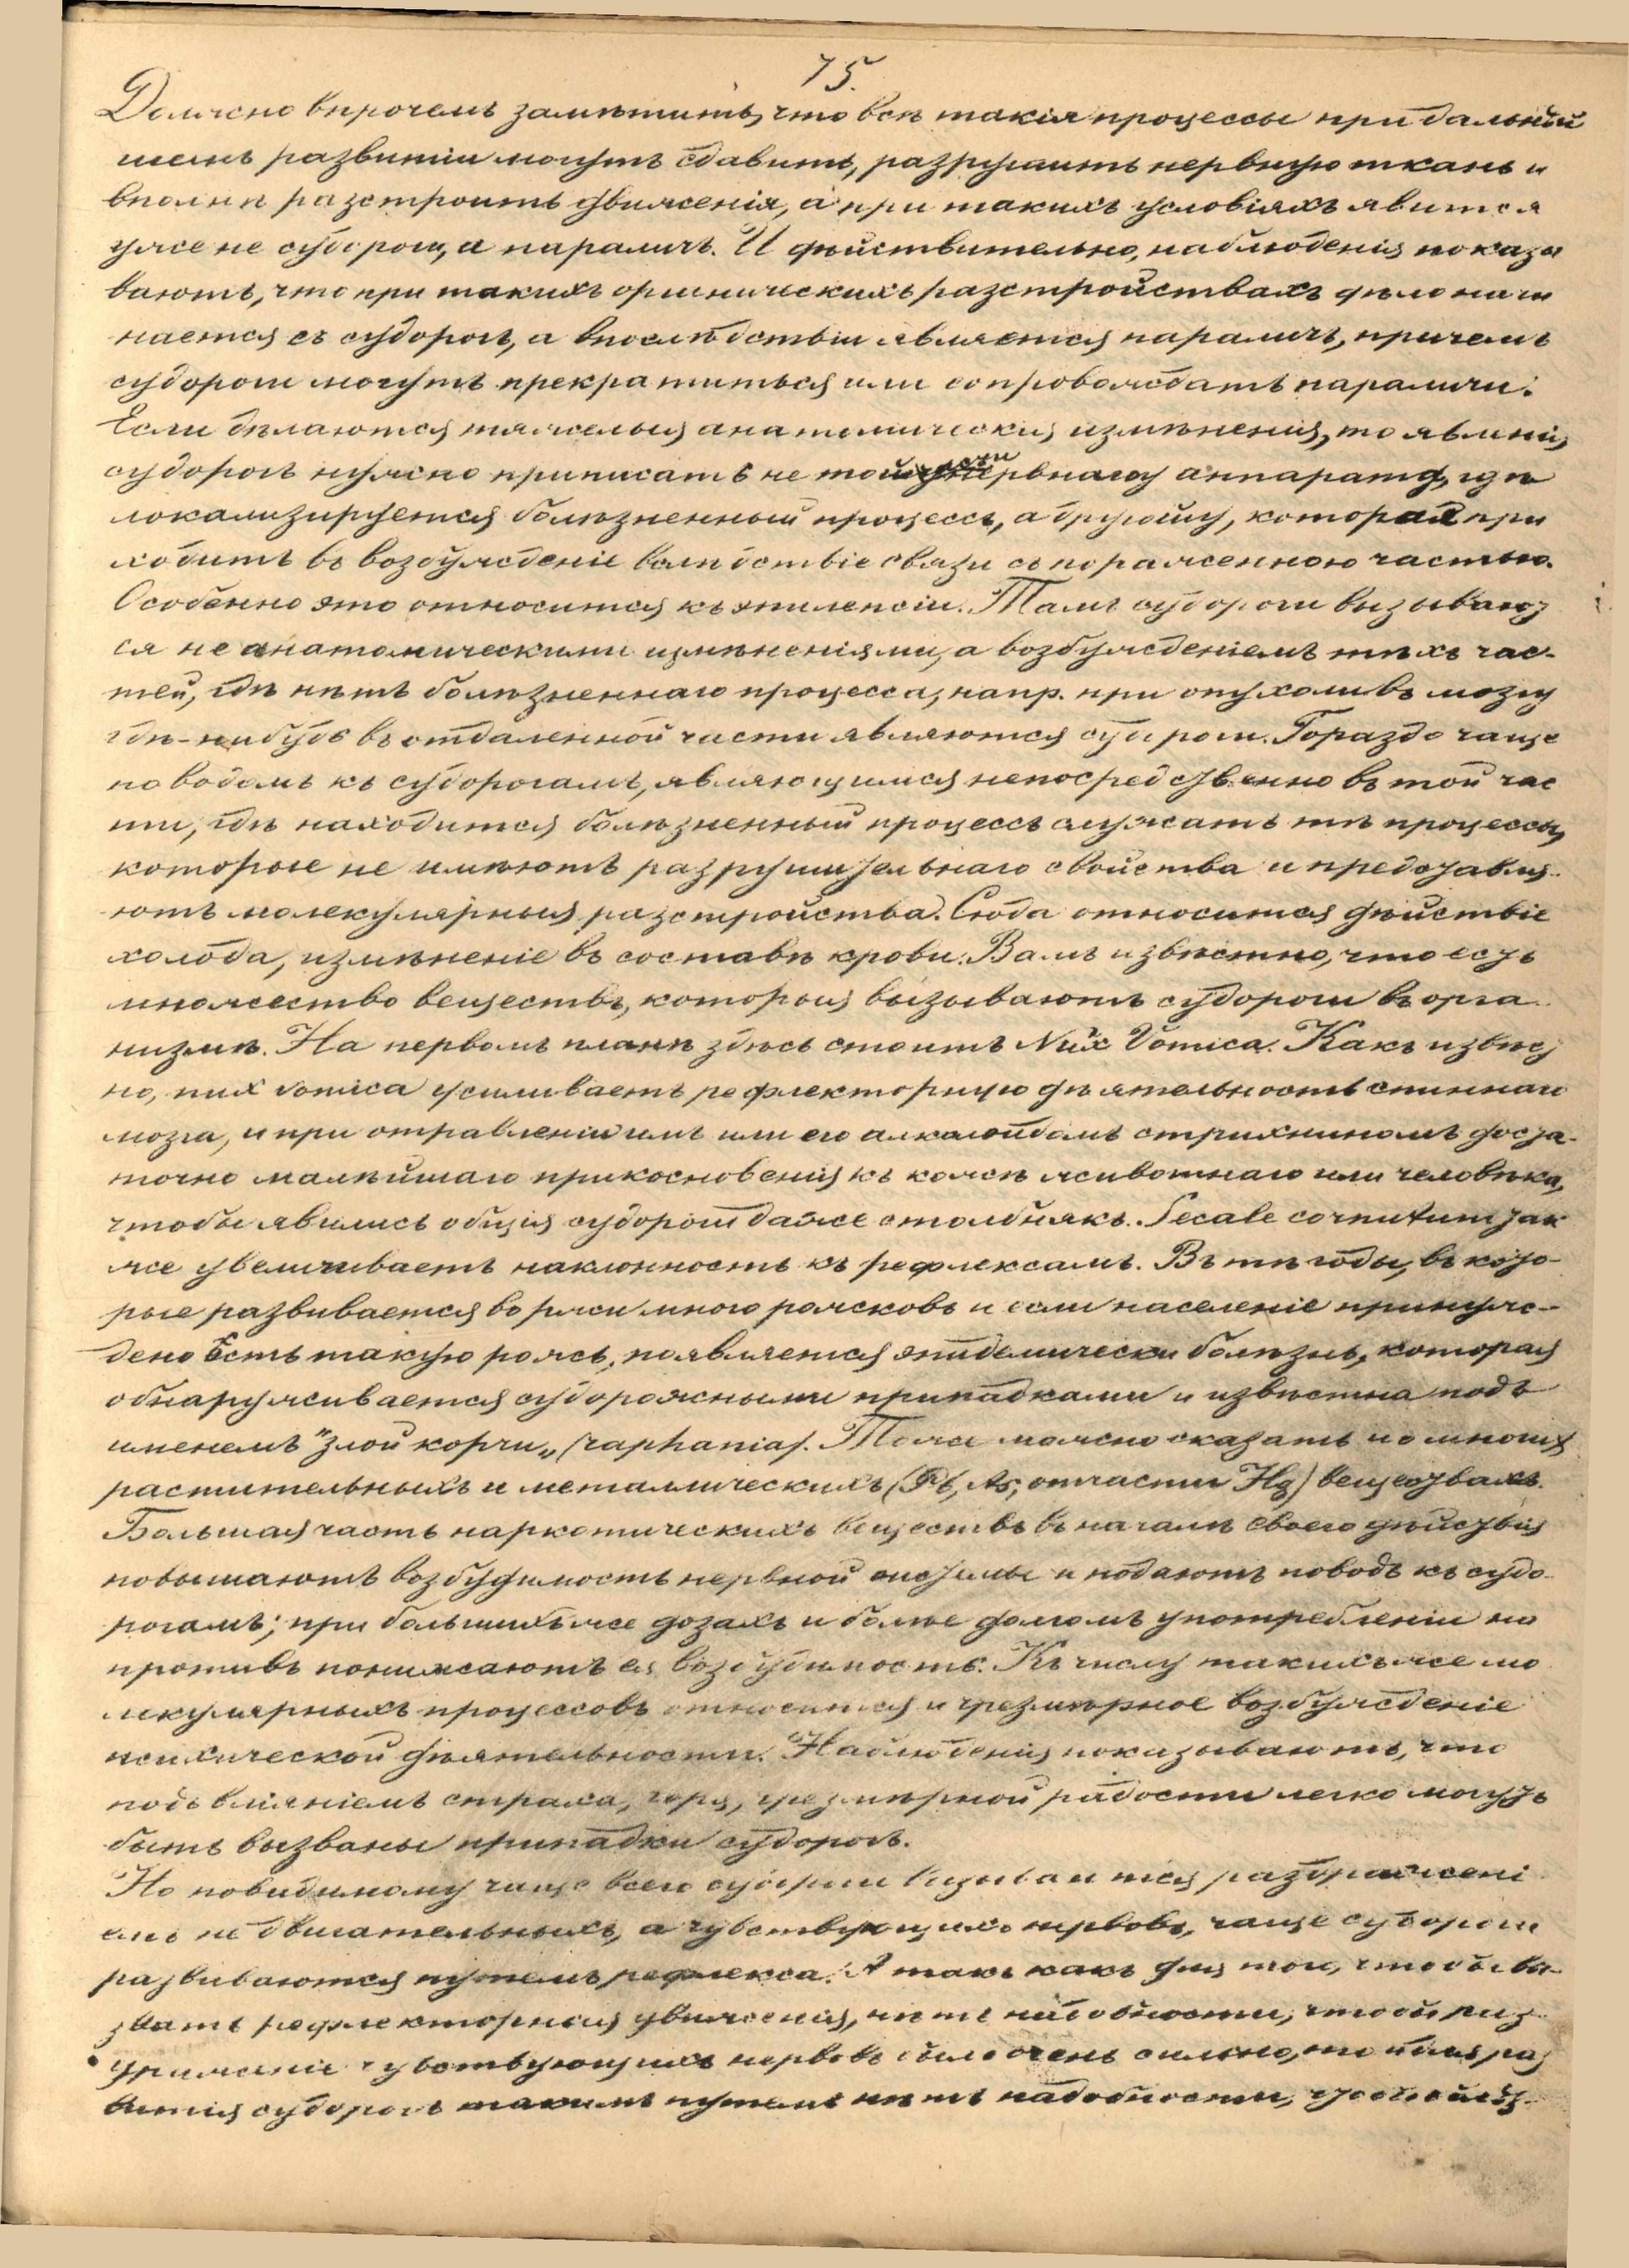 75.
Должно впрочемъ замѣтить, что всѣ такія процессы при дальнѣй
шемъ развитіи могутъ сдавить, разрушить нервную ткань и
вполнѣ разстроить движенія, а при такихъ условіяхъ явится
уже не судороги, а параличъ. И дѣйствительно, наблюденія показы
ваютъ, что при такихъ органическихъ разстройствахъ дѣло начи
нается съ судорогъ, а впослѣдствіи является параличъ, причемъ
судороги могутъ прекратиться или сопровождать параличи.
Если дѣлаются тяжелыя анатомическія измѣненія, то явленія
судорогъ нужно приписать не той части нервнаго аппарата, гдѣ
локализируется болѣзненный процессъ, а другому, которая при
ходитъ въ возбужденіе вслѣдствіе связи съ пораженною частью.
Особенно это относится къ эпилепсіи. Тамъ судороги вызывают
ся не анатомическими измѣненіями, а возбужденіемъ тѣхъ час-
тей, гдѣ нѣтъ болѣзненнаго процесса, напр. при опухоли въ мозгу
гдѣ-нибудь въ отдаленной части являются судороги. Гораздо чаще
поводомъ къ судорогамъ, являющимся непосредственно въ той час
ти, гдѣ находится болѣзненный процессъ служатъ тѣ процессы,
которые не имѣютъ разрушительнаго свойства и представля-
ютъ молекулярныя разстройства. Сюда относится дѣйствіе
холода, измѣненіе въ составѣ крови. Вамъ извѣстно, что есть
множество веществъ, которыя вызываютъ судороги въ орга-
низмѣ. На первомъ планѣ здѣсь стоитъ Nux Vomica. Какъ извѣст
но, nux vomica усиливаетъ рефлекторную дѣятельность спиннаго
мозга, и при отравленіи имъ или его алкалоидомъ стрихниномъ доста-
точно малѣйшаго прикосновенія къ кожѣ животнаго или человѣка,
чтобы явились общія судороги даже столбнякъ. Secale cornutum так
же увеличиваетъ наклонность къ рефлексамъ. Въ тѣ годы, въ кото-
рые развивается во ржи много рожковъ и если населеніе принуж-
дено ѣсть такую рожь, появляется эпидемически болѣзнь, которая
обнаруживается судорожными припадками и извѣстна подъ
именемъ "злой корчи„ (raphania). Тоже можно сказать и о многихъ
растительныхъ и металлическихъ (Pb, As, отчасти Hg) веществахъ.
Большая часть наркотическихъ веществъ въ началѣ своего дѣйствія
повышаютъ возбудимость нервной системы и подаютъ поводъ къ судо-
рогамъ; при большихъ же дозахъ и болѣе долгомъ употребленіи на
противъ понижаютъ ея возбудимость. Къ числу такихъ же мо
лекулярныхъ процессовъ относится и чрезмѣрное возбужденіе
психической дѣятельности. Наблюденія показываютъ, что
подъ вліяніемъ страха, горя, чрезмѣрной радости легко могутъ
быть вызваны припадки судорогъ.
Но повидимому чаще всего судороги вызываются раздраженi
емъ не двигательныхъ, а чувствующихъ нервовъ, чаще судороги
развиваются путемъ рефлекса. А такъ какъ для того, чтобы вы-
звать рефлекторныя движенія, нѣтъ надобности, чтобы раз-
драженіе чувствующихъ нервовъ было очень сильно, то и для раз
витія судорогъ такимъ путемъ нѣтъ надобности,